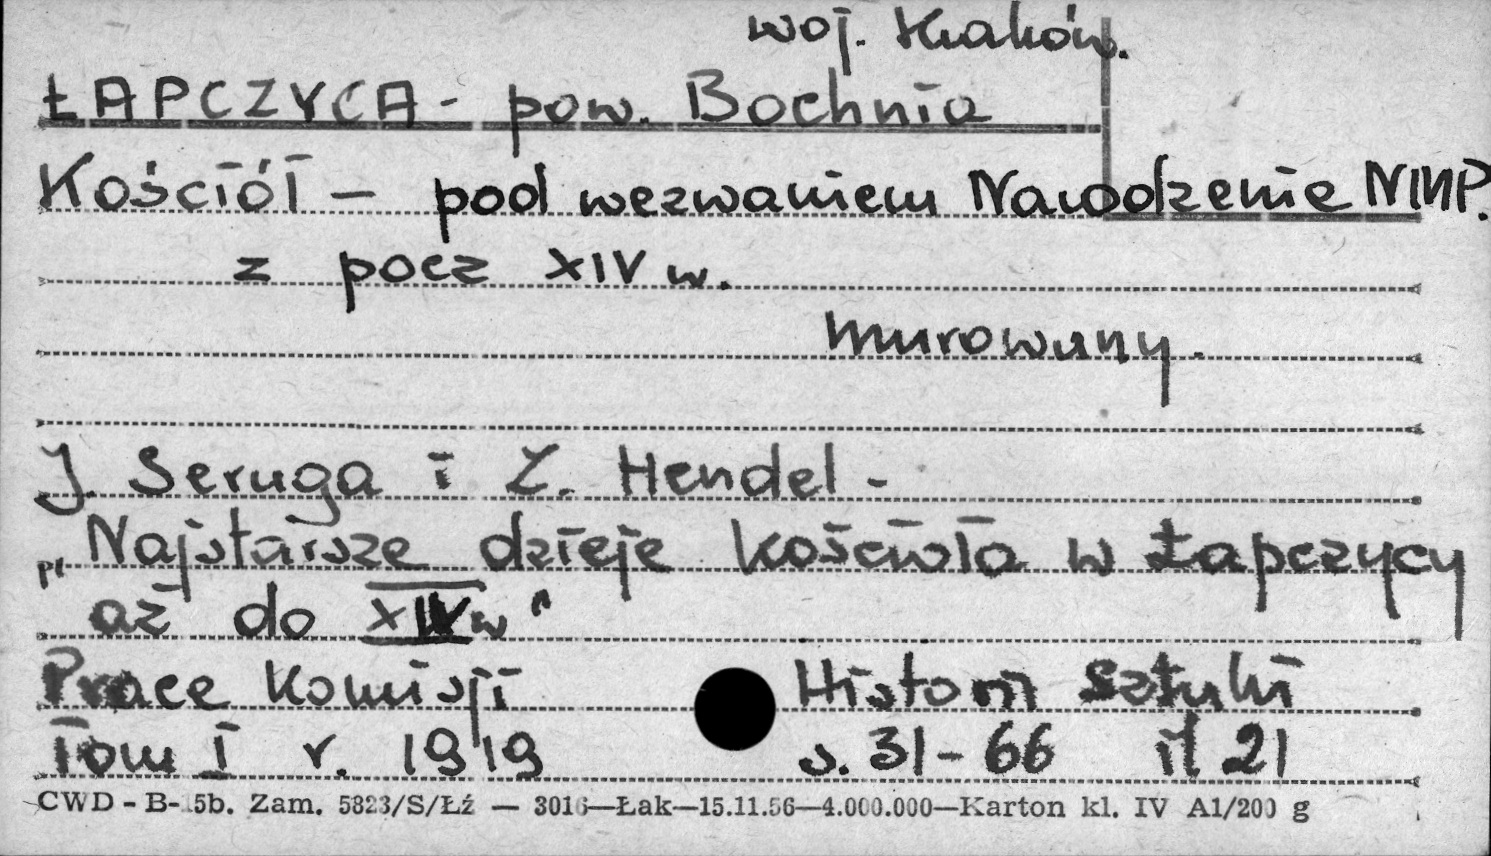 woj. Kraków.
ŁAPCZYCA - pow. Bochnia
Kościół — pod wezwaniem Narodzenie NMP.
z pocz XIV w.
murowany.
J. Seruga i Z. Hendel -
„Najstarsze dzieje kościoła w Łapczycy
aż do XIV w"
Prace Komisji Historii Sztuki
Tom I r. 1919 s. 31-66 il 21
CWD - B-15b. Zam. 5823/S/Łź — 3016—Łak—15.11.56—4.000.000—Karton kl. IV A1/200 g